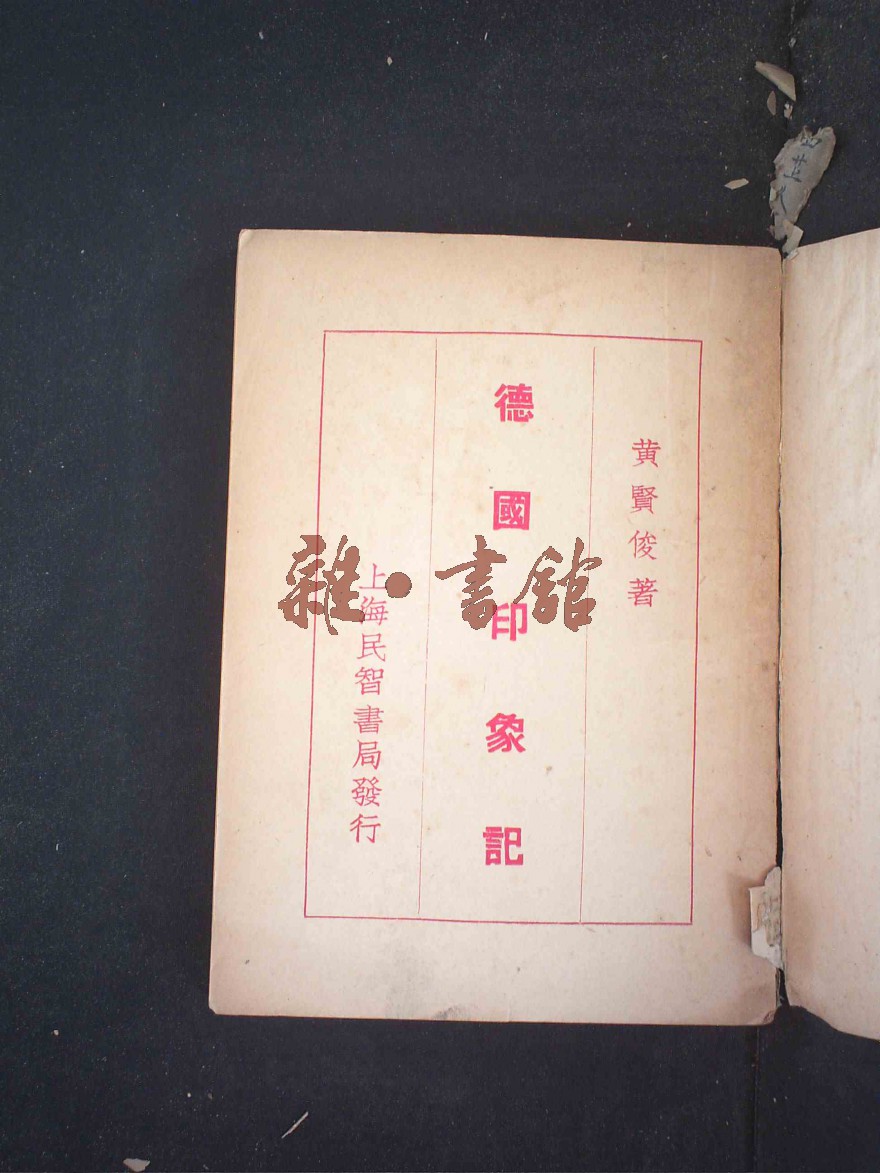 黄賢俊著
德國印象記
上海民智書局發行
雜·書館